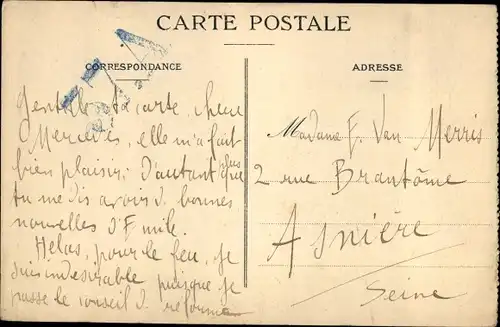 CARTE POSTALE
CORRESPONDANCE
ADRESSE
Gentille ta carte, chère
Mercédès, elle m'a fait
bien plaisir, d'autant plus que
tu me dis avoir d. bonnes
nouvelles d'Emile.
Hélas, pour le feu, je
suis indésirable puisque je
passe le conseil d. réforme
Madame E. Van Merris
2 rue Brantôme
Asnière
Seine